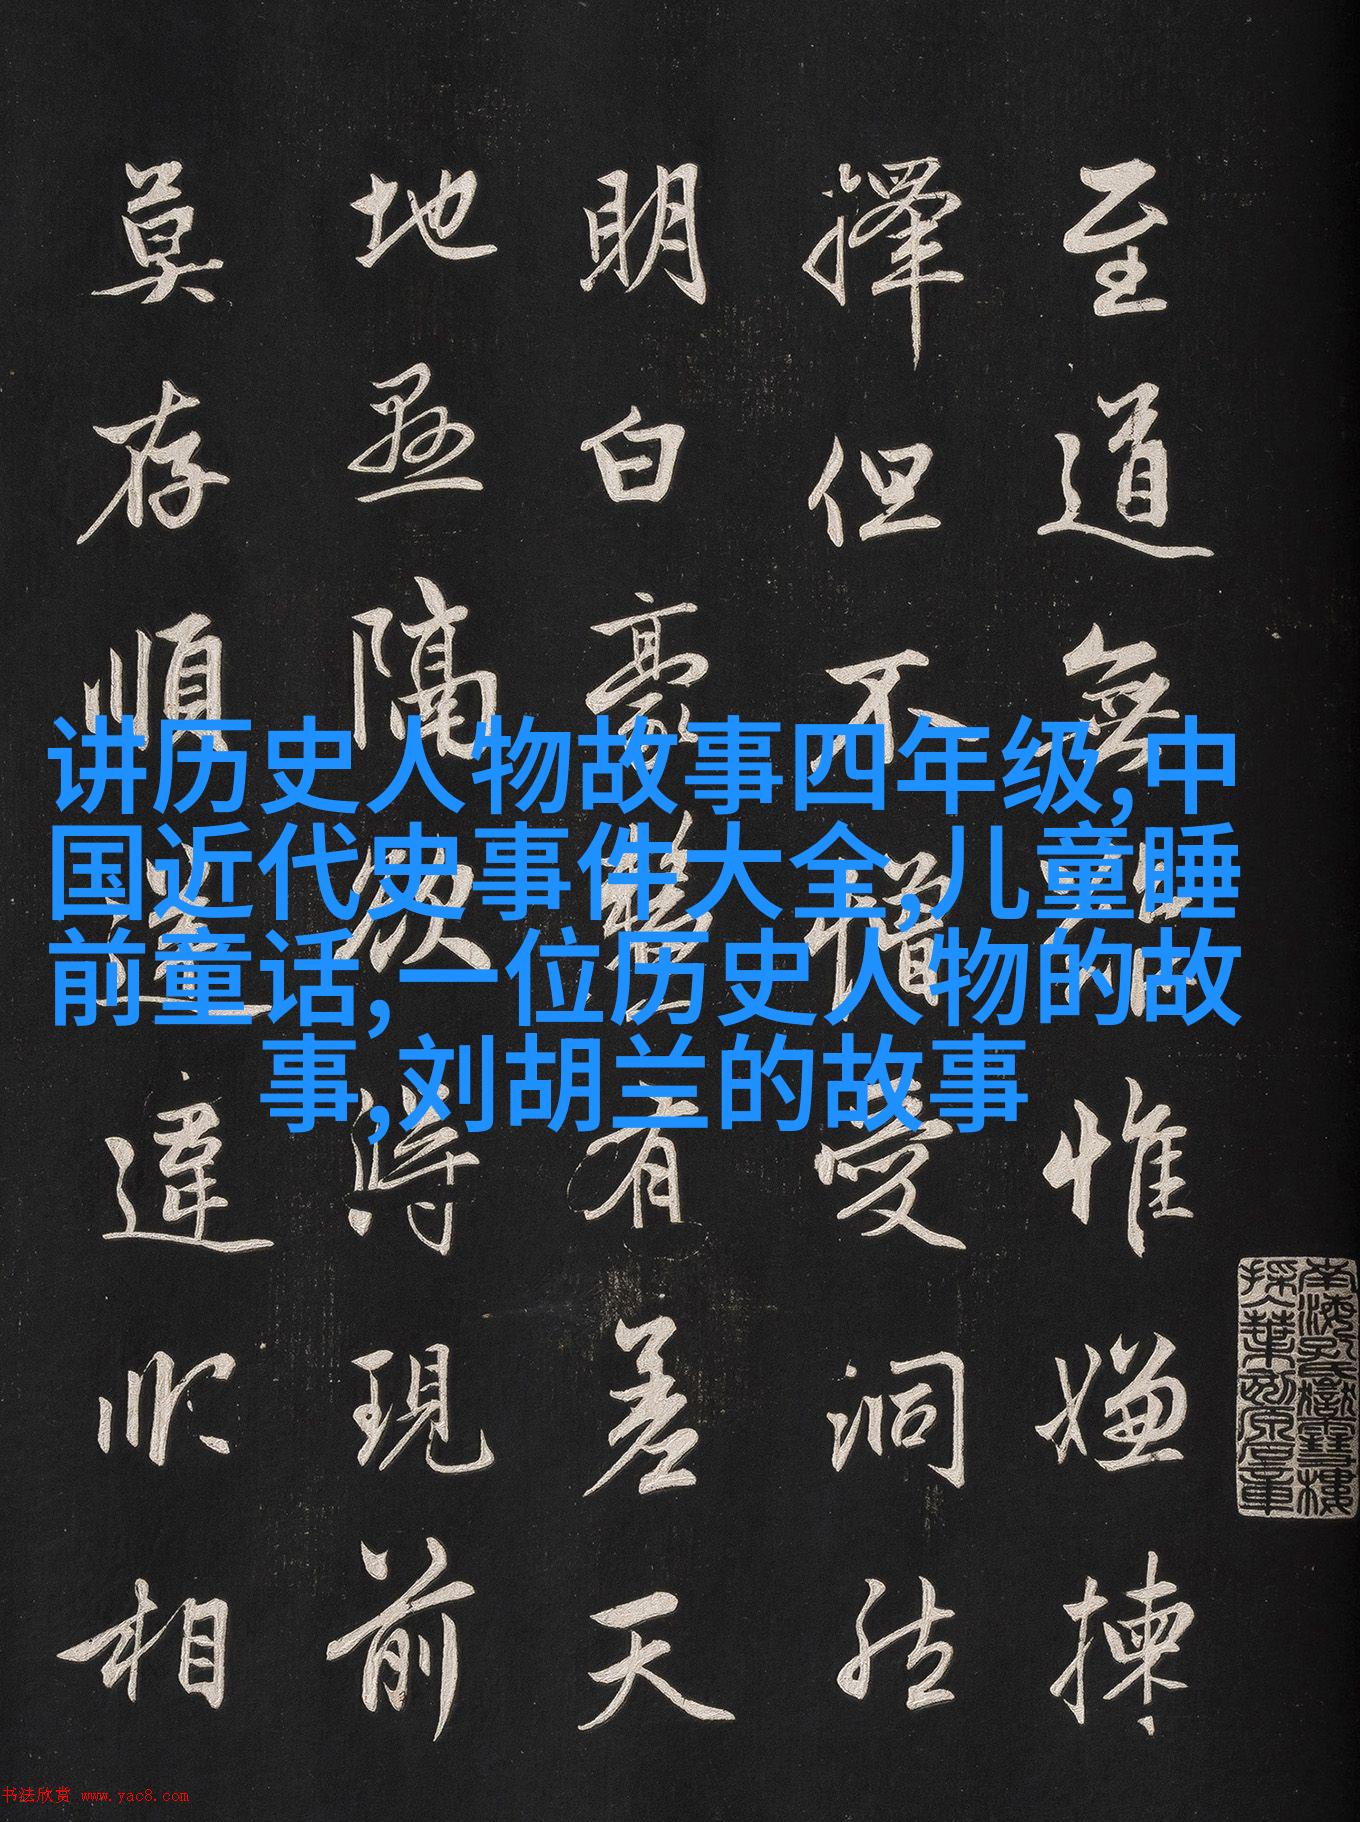 至道無難惟嫌揀
擇但不憎愛洞然
明白豪釐有差天
地懸隔欲得現前
莫存順逆違順相
讲历史人物故事四年级,中
国近代史事件大全,儿童睡
前童话,一位历史人物的故
事,刘胡兰的故事
书法欣赏 www.yac8.com